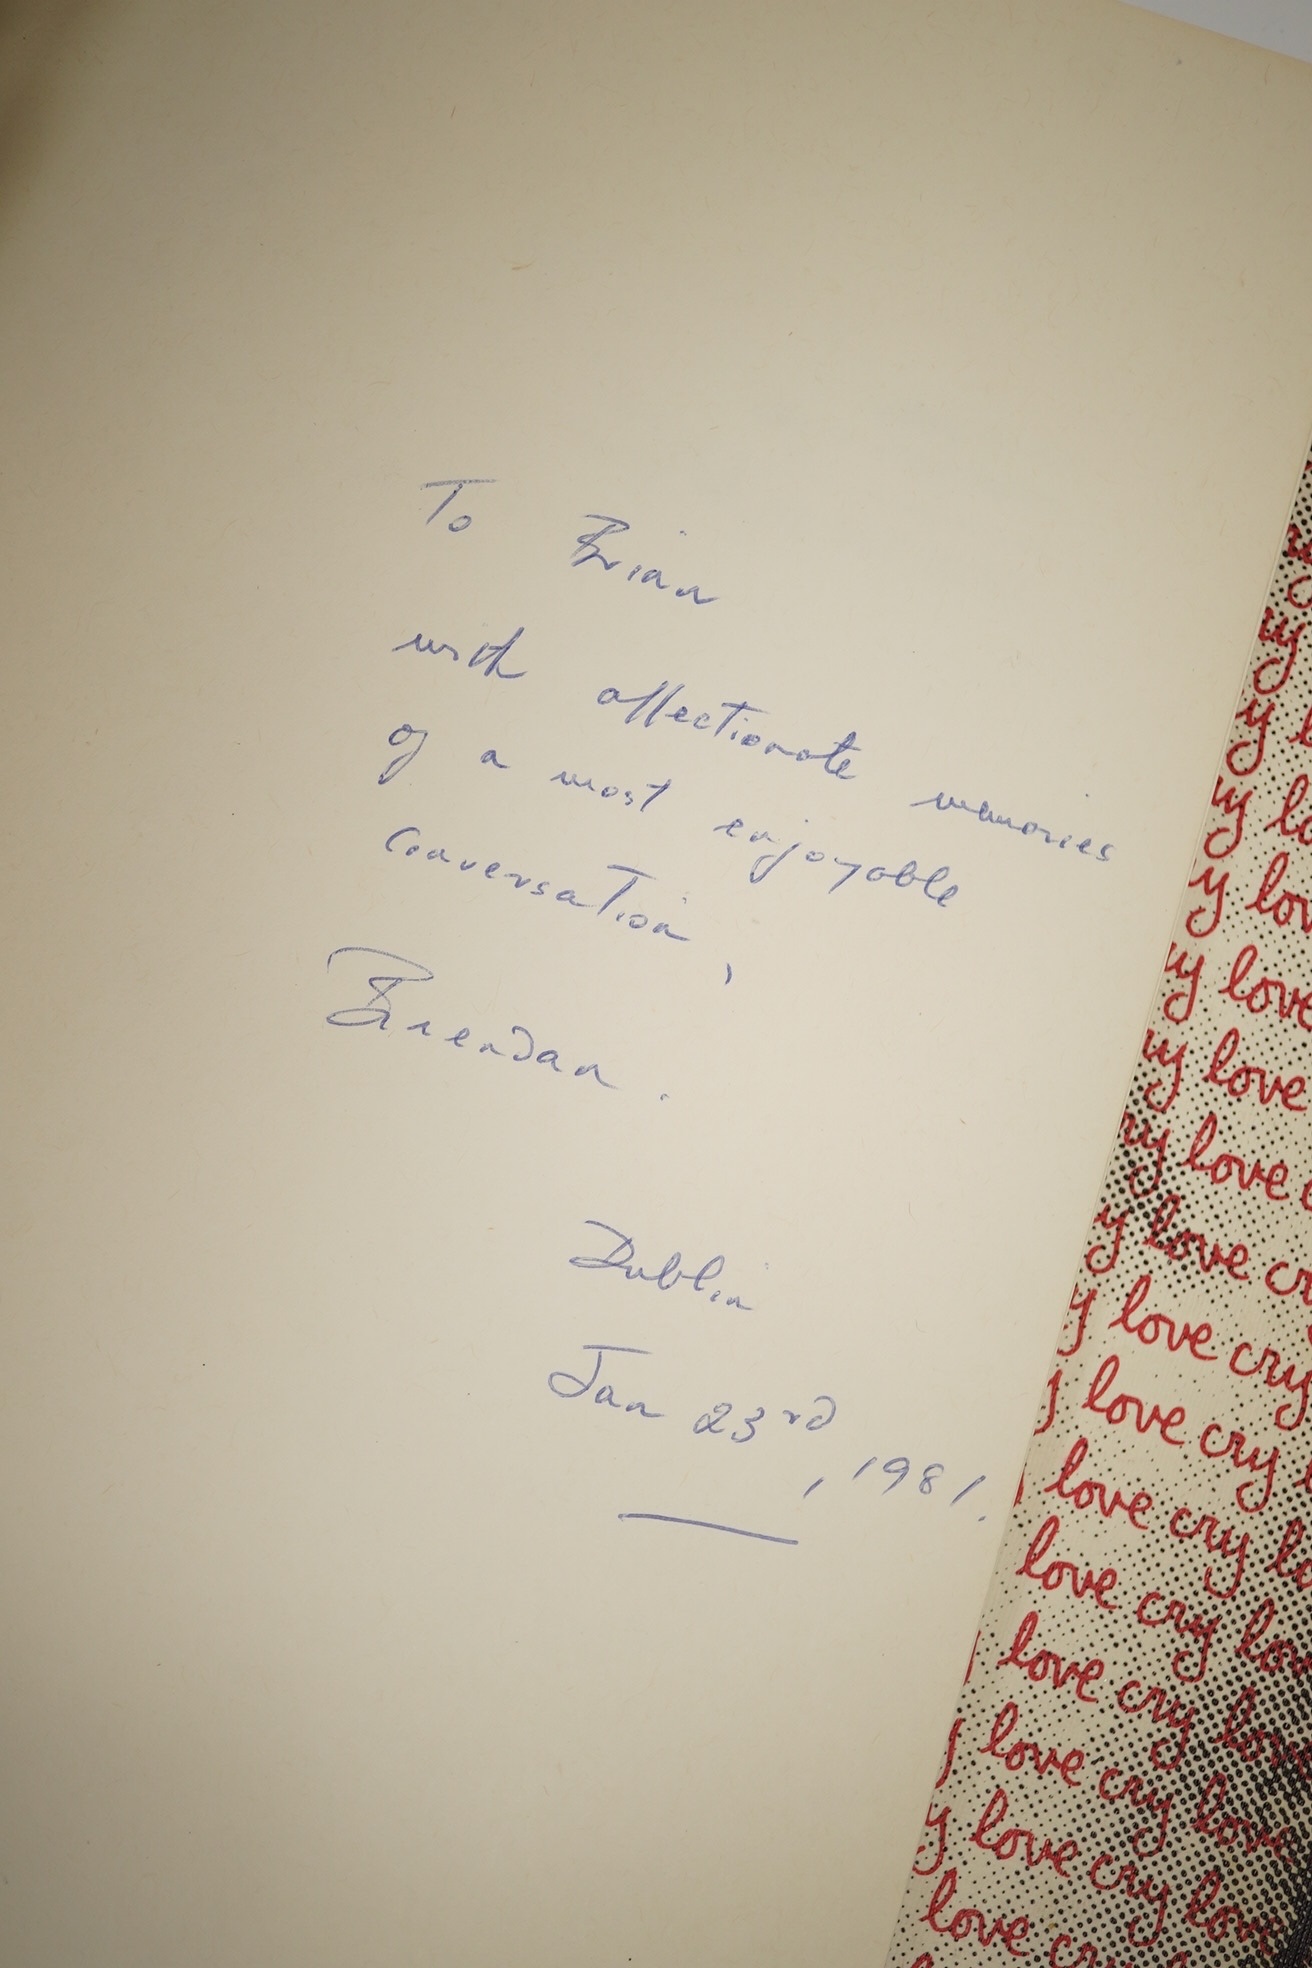 To Brian
with affectionate memories
of a most enjoyable
conversation,
Brendan.
Dublin
Jan 23rd
, 1981.
y
ry
y l
ry lo
y lov
ry love
ry love
ry love c
y love cr
y love cry
y love cry l
love cry lo
love cry lov
love cry love
y love cry love
y love cry love
love cry